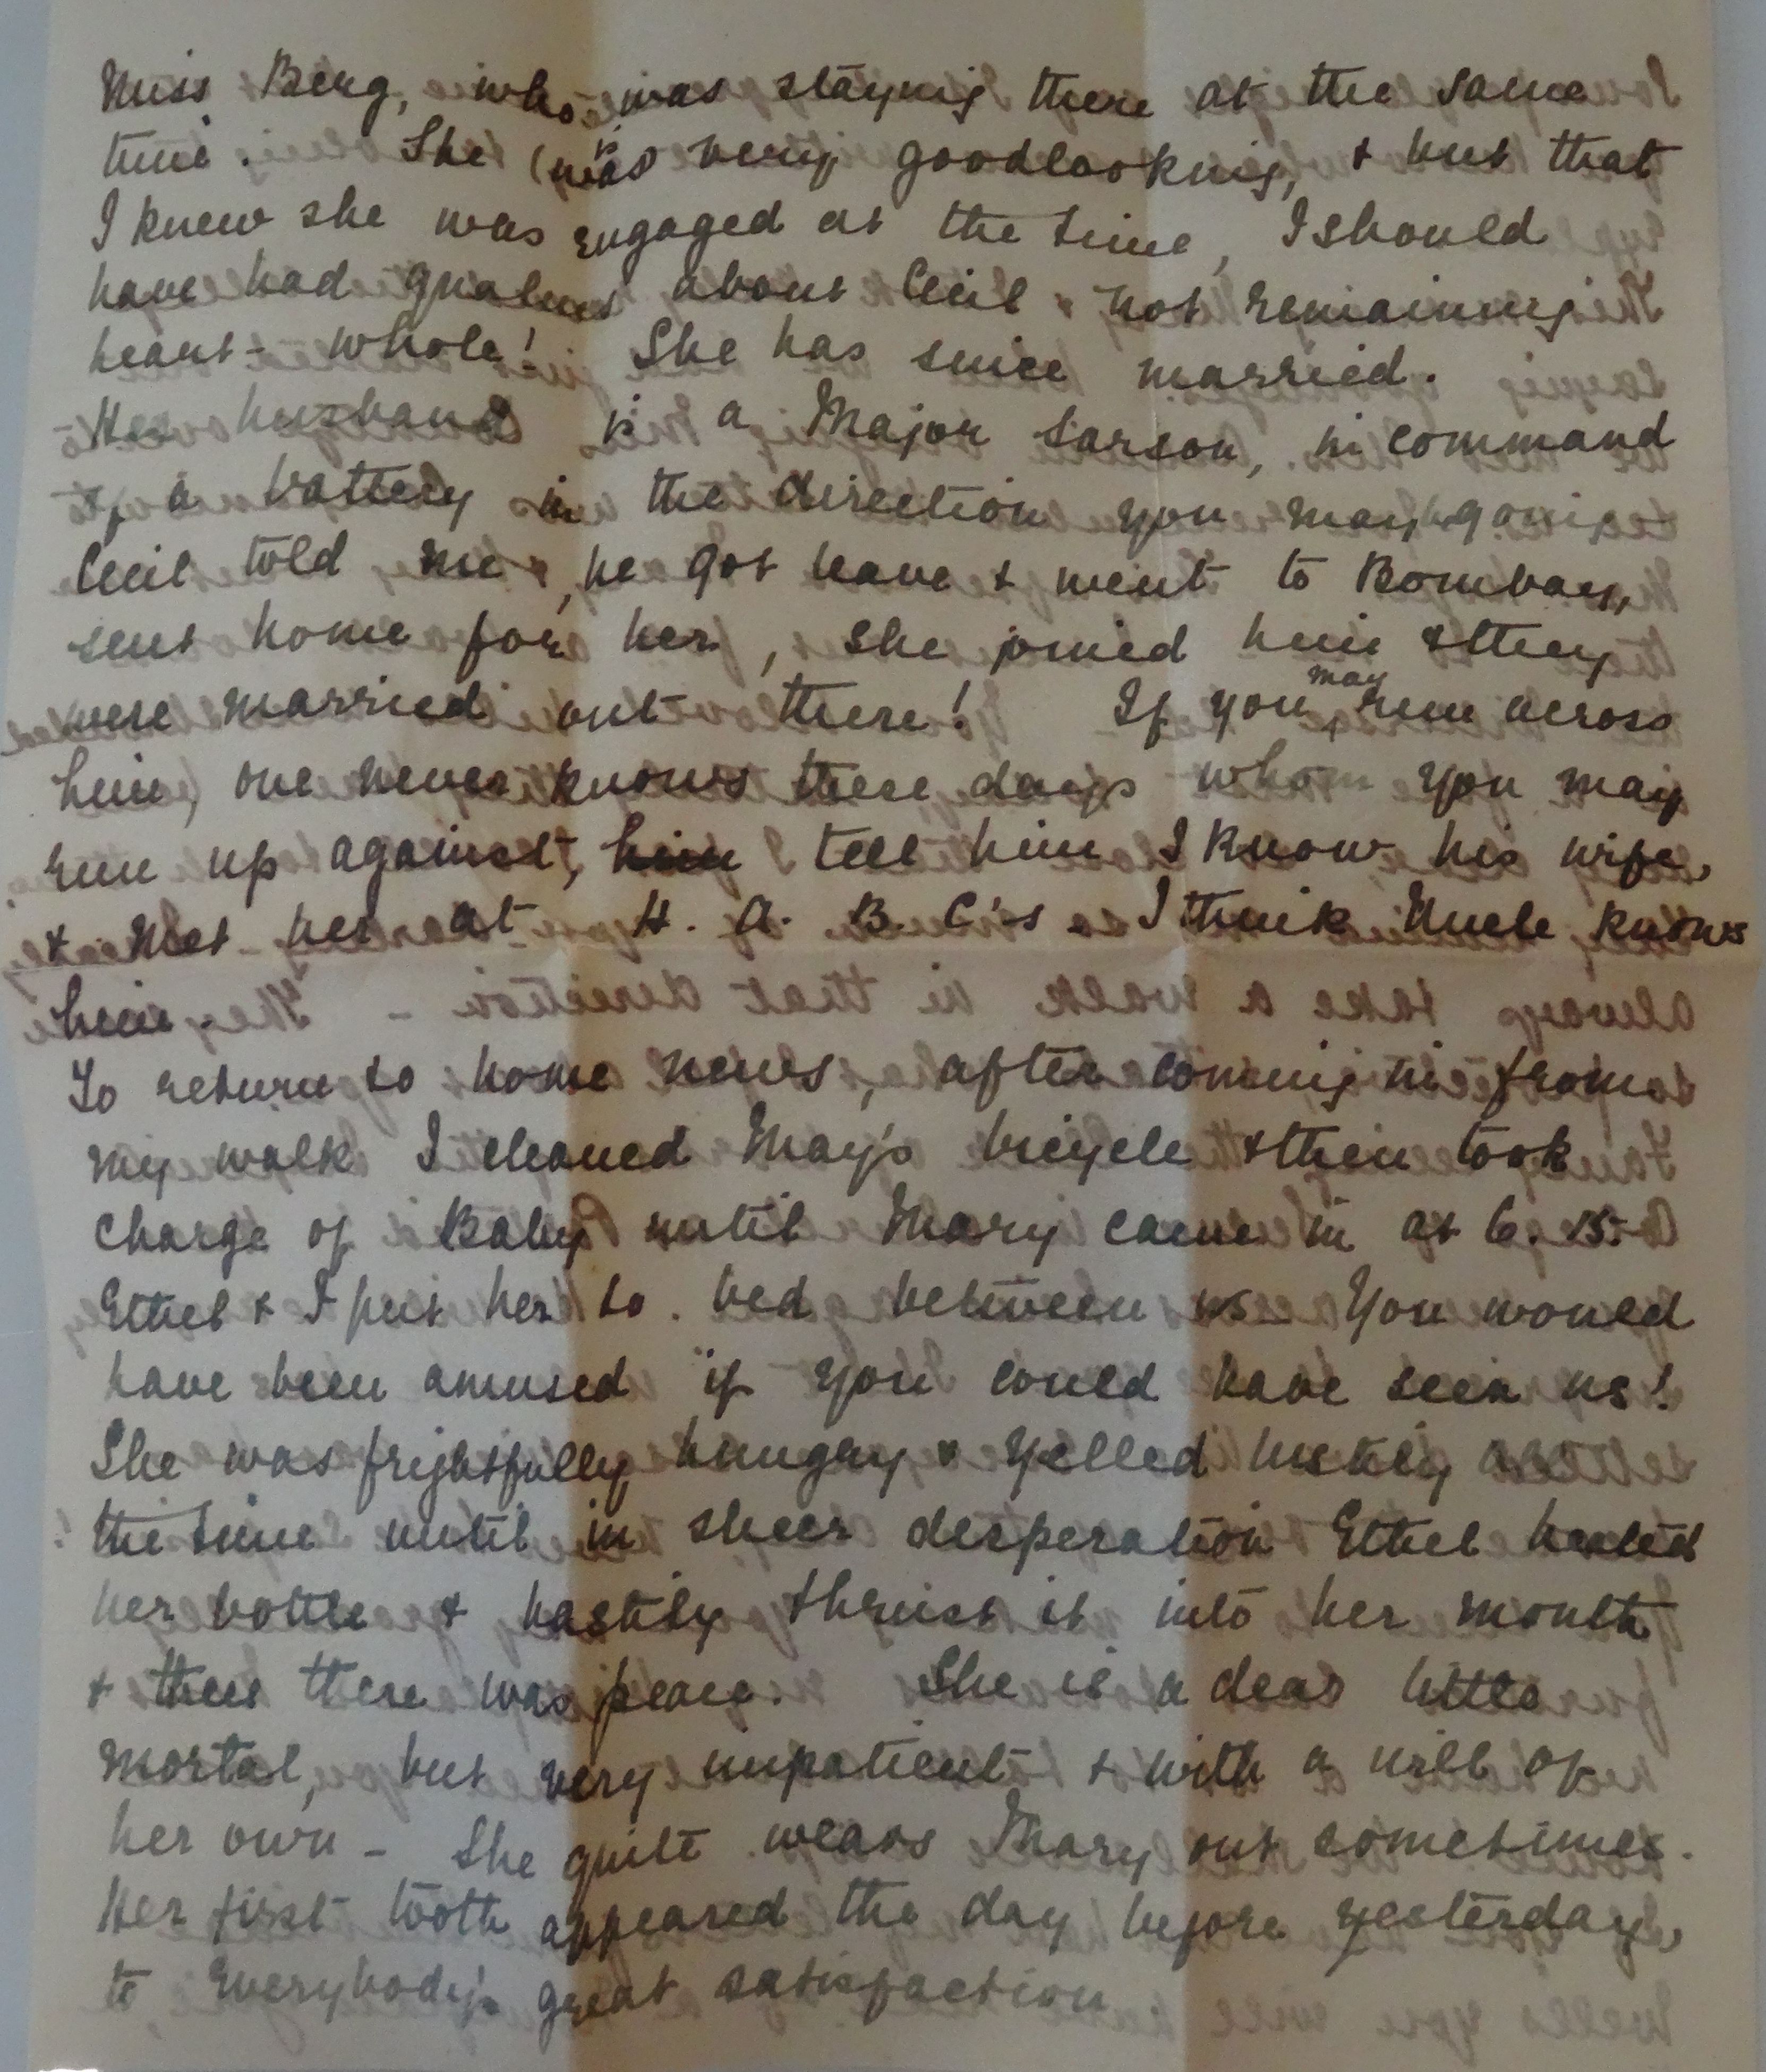 Miss Berg, who was staying there at the same
time. She (was is very goodlooking, & but that
I knew she was engaged at the time, I should
have had qualms about Cecil not remaining
heart-whole! She has since married.
Her husband is a Major Sarson, in command
of a battery in the direction you may be going
Cecil told me, he got leave & went to Bombay,
sent home for her, she joined him & they
were married out there! If you may run across
him, one never knows these days whom you may
run up against, him tell him I know his wife,
& met her at H. A. B. C's. I think Uncle knows
him.
To return to home news, after coming in from
my walk I cleaned May's bicycle & then took
charge of Baby until Mary came in at 6.15.
Ethel & I put her to bed between us. You would
have been amused if you could have seen us!
She was frightfully hungry & yelled lustily all
the time until in sheer desperation Ethel heated
her bottle & hastily thrust it into her mouth
& then there was peace. She is a dear little
mortal, but very impatient & with a will of
her own - She quite wears Mary out sometimes.
Her first tooth appeared the day before yesterday,
to everybody's great satisfaction